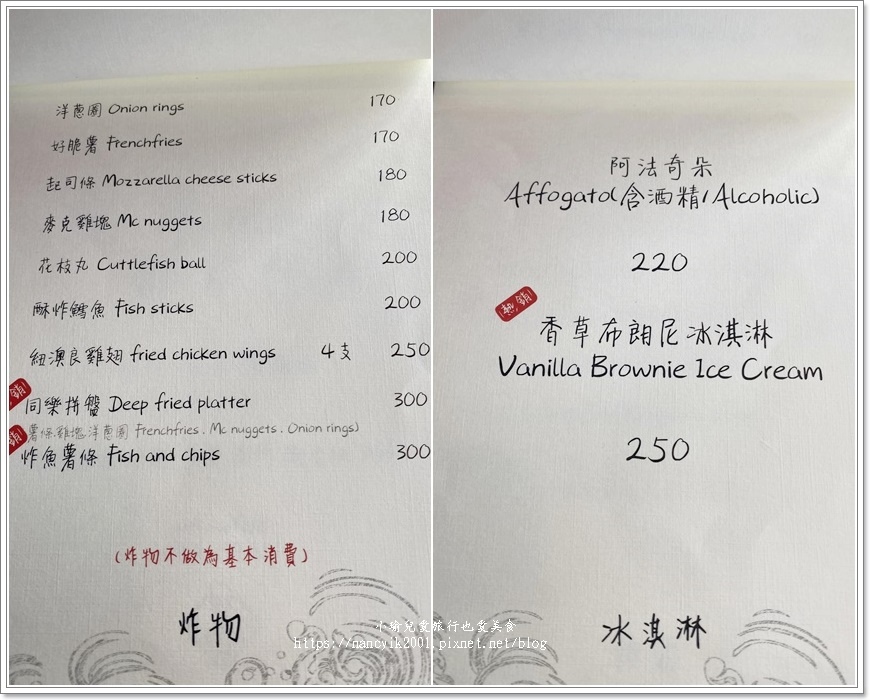 洋蔥圈 Onion rings 170
好脆薯 Frenchfries 170
起司條 Mozzarella cheese sticks 180
麥克雞塊 Mc nuggets 180
花枝丸 Cuttlefish ball 200
酥炸鱈魚 Fish sticks 200
紐澳良雞翅 fried chicken wings 4支 250
銷!
同樂拼盤 Deep fried platter 300
銷!
薯條.雞塊.洋蔥圈 Frenchfries . Mc nuggets . Onion rings)
炸魚薯條 Fish and chips 300
(炸物不做為基本消費)
炸物
阿法奇朵
Affogato(含酒精/Alcoholic)
220
熱銷!
香草布朗尼冰淇淋
Vanilla Brownie Ice Cream
250
冰淇淋
小瑜兒愛旅行也愛美食
https://nancyik2001.pixnet.net/blog